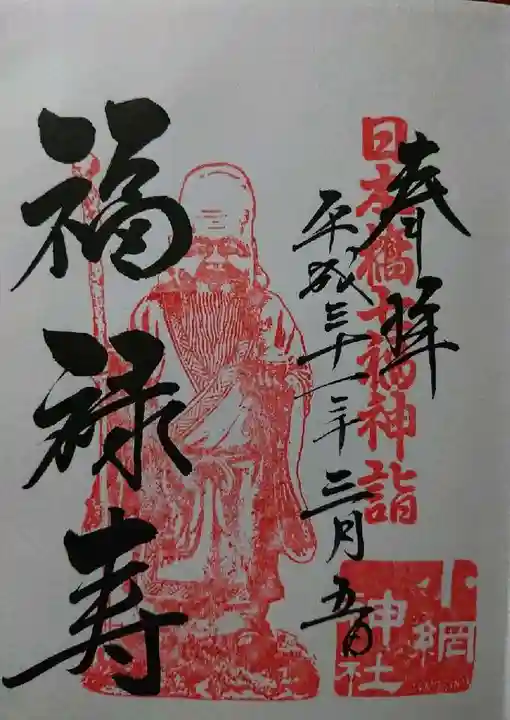 奉拝
日本橋七福神詣
平成三十一年三月五日
福禄寿
小網
神社